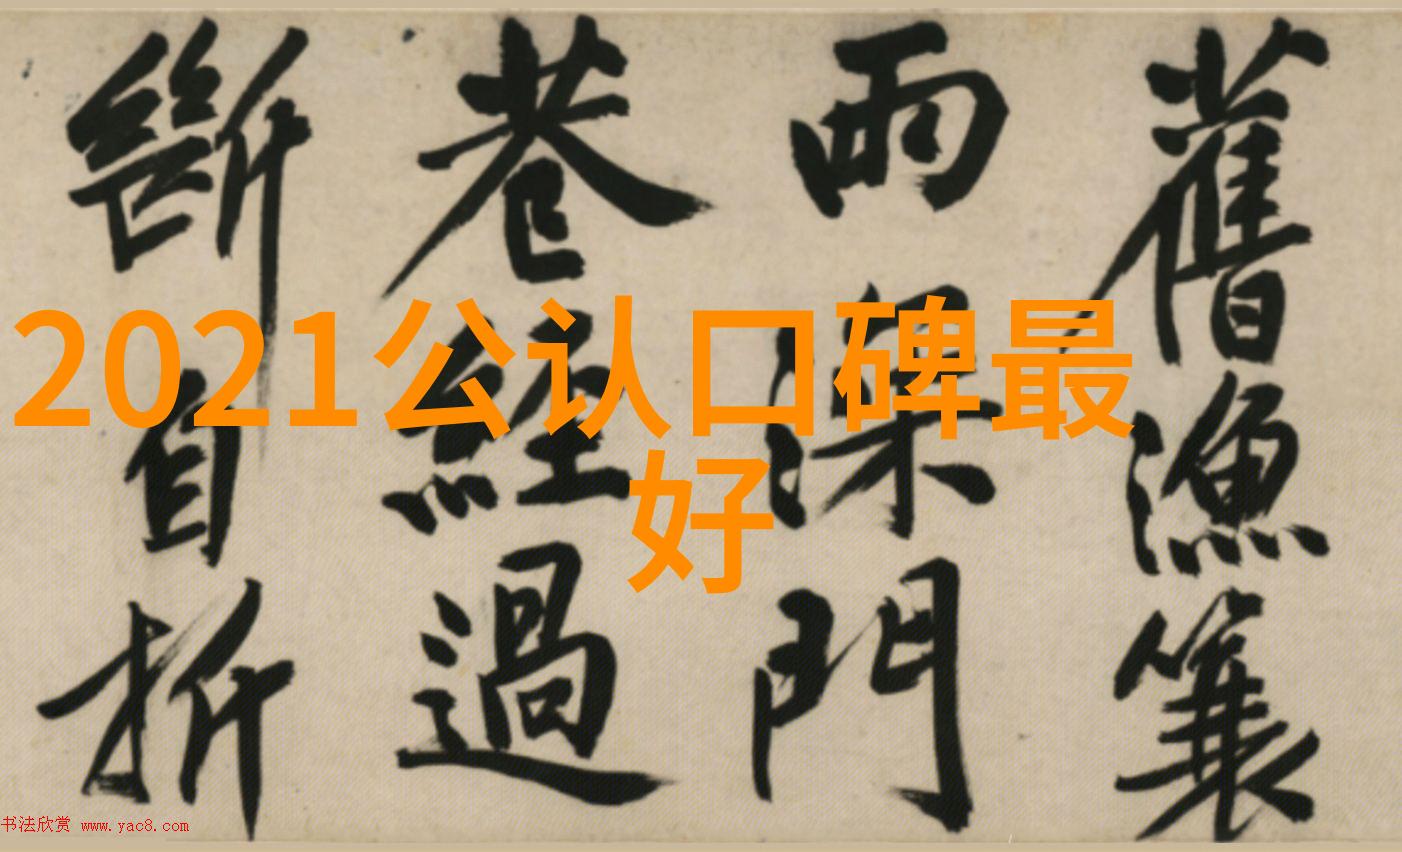 舊漁簑
雨深門
巷經過
斷自折
2021公认口碑最
好
书法欣赏 www.yac8.com